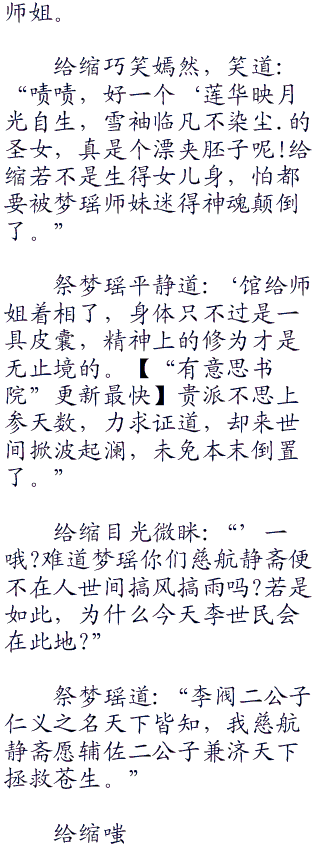 师姐。
给缩巧笑嫣然，笑道：
“啧啧，好一个‘莲华映月
光自生，雪袖临凡不染尘.的
圣女，真是个漂夹胚子呢!给
缩若不是生得女儿身，怕都
要被梦瑶师妹迷得神魂颠倒
了。”
祭梦瑶平静道：‘馆给师
姐着相了，身体只不过是一
具皮囊，精神上的修为才是
无止境的。【“有意思书
院”更新最快】贵派不思上
参天数，力求证道，却来世
间掀波起澜，未免本末倒置
了。”
给缩目光微眯：“’一
哦?难道梦瑶你们慈航静斋便
不在人世间搞风搞雨吗?若是
如此，为什么今天李世民会
在此地?”
祭梦瑶道：“李阀二公子
仁义之名天下皆知，我慈航
静斋愿辅佐二公子兼济天下
拯救苍生。”
给缩嗤